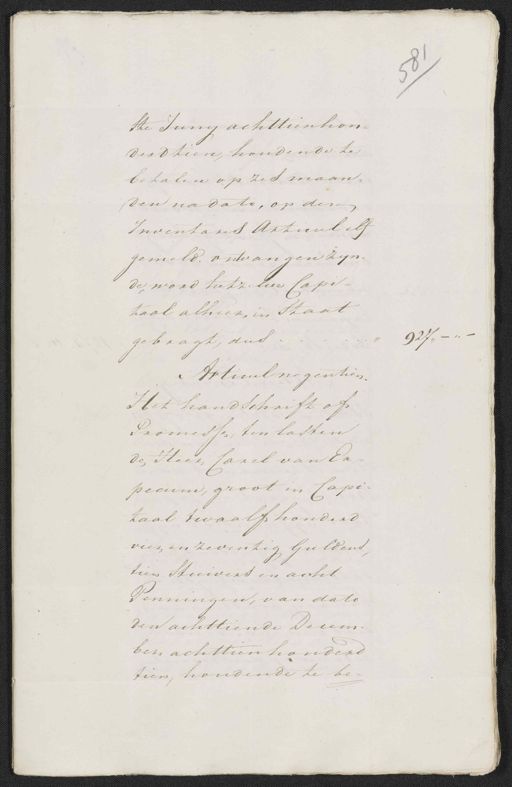 581
ste Juny achttienhon-
derdtien, houdende te
betalen op zes maan-
den na dato, op den
Inventaris Articul elf
gemeld, ontvangen zyn-
de, word hetzelve Capi-
taal alhier in Staat
gebragt, dus " 927,-"-
Articul negentien.
Het handschrift of
Promesse, ten lasten
de Heer Carel van
pecum, groot in Capi-
taal twaalf honderd
vier en zeventig Guldens,
tien Stuivers en acht
Penningen, van dato
den achttiende Decem-
ber achttien honderd
tien, houdende te be-